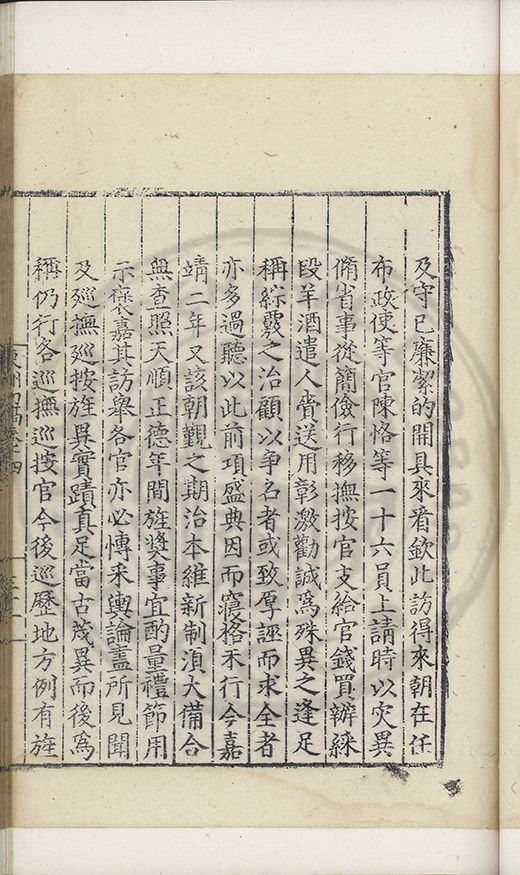 及守已廉潔的開具來看欽此訪得來朝在任
布政使等官陳恪等一十六員上請時以灾異
脩省事從簡儉行移撫按官支給官錢買辦綵
段羊酒遣人賫送用彰激勸誠爲殊異之逢足
稱綜覈之治顧以争名者或致厚誣而求全者
亦多過聽以此前項盛典因而寢格不行今嘉
靖二年又該朝覲之期治本維新制湏大備合
無查照天順正德年間旌奬事宜酌量禮節用
示褒嘉其訪舉各官亦必慱采輿論盡所見聞
及廵撫廵按旌異實蹟真足當古茂異而後爲
稱仍行各巡撫巡按官今後巡歷地方例有旌